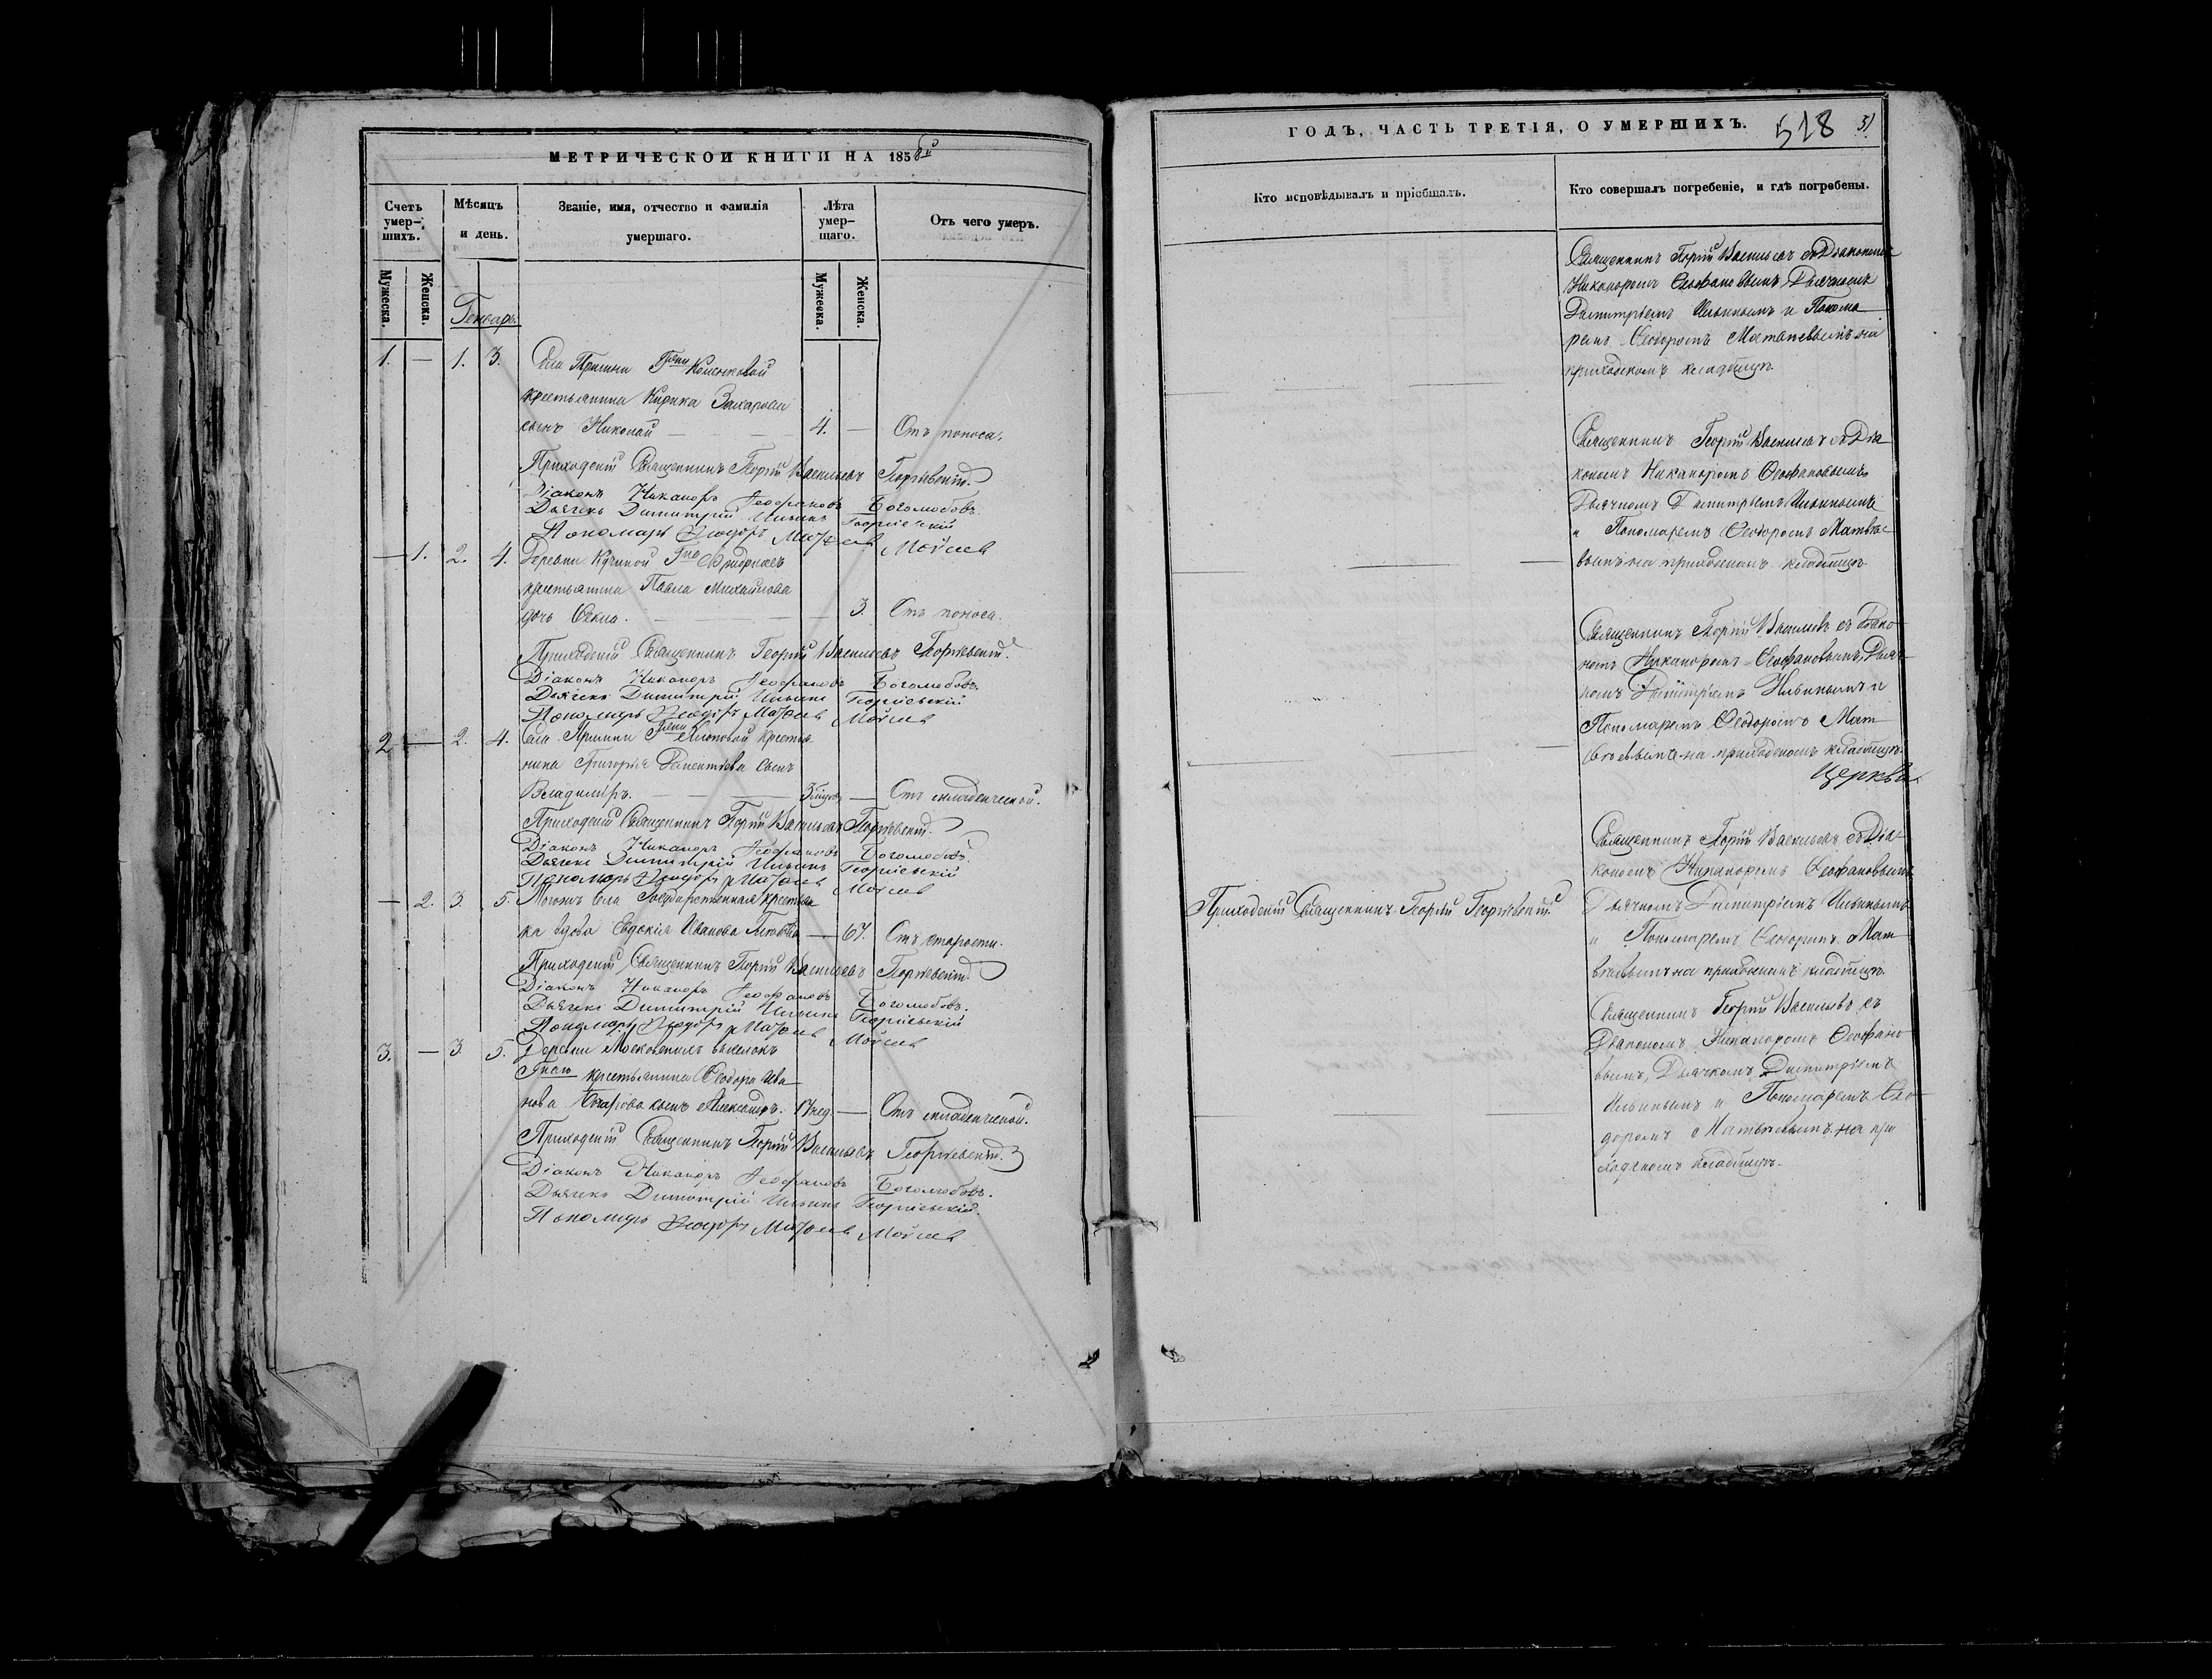 МЕТРИЧЕСКОЙ КНИГИ НА 1858й
Счетъ умер-шихъ.
Мѣсяцъ и день.
Званіе, имя, отчество и фамилія умершаго.
Лѣта умер-шаго.
Отъ чего умеръ.
Мужеска.
Женска.
Мужеска.
Женска.
Генварь.
1. — 1. 3. Села
крестьянина Кирика Захарова
сынъ Николай — 4. — Отъ поноса.
Приходскій Священникъ Георгій Васильевъ Георгіевскій.
Діаконъ Никаноръ Феофановъ Боголюбовъ.
Дьячекъ Димитрій Ильинъ Георгіевскій
Пономарь Ѳеодоръ Матѳеевъ
— 1. 2. 4. Деревни
крестьянина Павла Михайлова
дочь Ѳекла. — 3. Отъ поноса.
Приходскій Священникъ Георгій Васильевъ Георгіевскій.
Діаконъ Никаноръ Феофановъ Боголюбовъ.
Дьячекъ Димитрій Ильинъ Георгіевскій
Пономарь Ѳеодоръ Матѳеевъ
2 — 2. 4. Села крестья-
нина Григорія сынъ
Владиміръ. — — Отъ младенческой.
Приходскій Священникъ Георгій Васильевъ Георгіевскій.
Діаконъ Никаноръ Феофановъ Боголюбовъ.
Дьячекъ Димитрій Ильинъ Георгіевскій
Пономарь Ѳеодоръ Матѳеевъ
— 2. 3. 5. села Государственная крестьян
ка вдова Евдокія Иванова — 67. Отъ старости.
Приходскій Священникъ Георгій Васильевъ Георгіевскій
Діаконъ Никаноръ Феофановъ Боголюбовъ.
Дьячекъ Димитрій Ильинъ Георгіевскій
Пономарь Ѳеодоръ Матѳеевъ
3. — 3 5. Деревни
крестьянина Ѳеодора Ива
нова сынъ Александръ. — Отъ младенческой.
Приходскій Священникъ Георгій Васильевъ Георгіевскій.
Діаконъ Никаноръ Феофановъ Боголюбовъ.
Дьячекъ Димитрій Ильинъ Георгіевскій.
Пономарь Ѳеодоръ Матѳеевъ
ГОДЪ, ЧАСТЬ ТРЕТІЯ, О УМЕРШИХЪ.
518
51
Кто исповѣдывалъ и пріобщалъ.
Кто совершалъ погребеніе, и гдѣ погребены.
Священникъ Георгій Васильевъ съ Діакономъ
Никаноромъ Ѳеофановымъ, Дьячкомъ
Димитріемъ Ильинымъ и Понома
ремъ Ѳеодоромъ Матвѣевымъ на
приходскомъ кладбищѣ.
Священникъ Георгій Васильевъ съ Діа
кономъ Никаноромъ Ѳеофановымъ
Дьячкомъ Димитріемъ Ильинымъ
и Пономаремъ Ѳеодоромъ Матвѣе
вымъ на приходскомъ кладбищѣ
Священникъ Георгій Васильевъ съ Діако
номъ Никаноромъ Ѳеофановымъ, Дьяч
комъ Димитріемъ Ильинымъ и
Пономаремъ Ѳеодоромъ Мат
вѣевымъ на приходскомъ кладбищѣ.
Церква
Священникъ Георгій Васильевъ съ Діа
кономъ Никаноромъ Ѳеофановымъ
Приходскій Священникъ Георгій Георгіевскій.
Дьячкомъ Димитріемъ Ильинымъ
и Пономаремъ Ѳеодоромъ Мат
вѣевымъ на приходскомъ кладбищѣ.
Священникъ Георгій Васильевъ съ
Діакономъ Никаноромъ Ѳеофано
вымъ, Дьячкомъ Димитріемъ
Ильинымъ и Пономаремъ Ѳео
доромъ Матвѣевымъ на при
ходскомъ кладбищѣ.